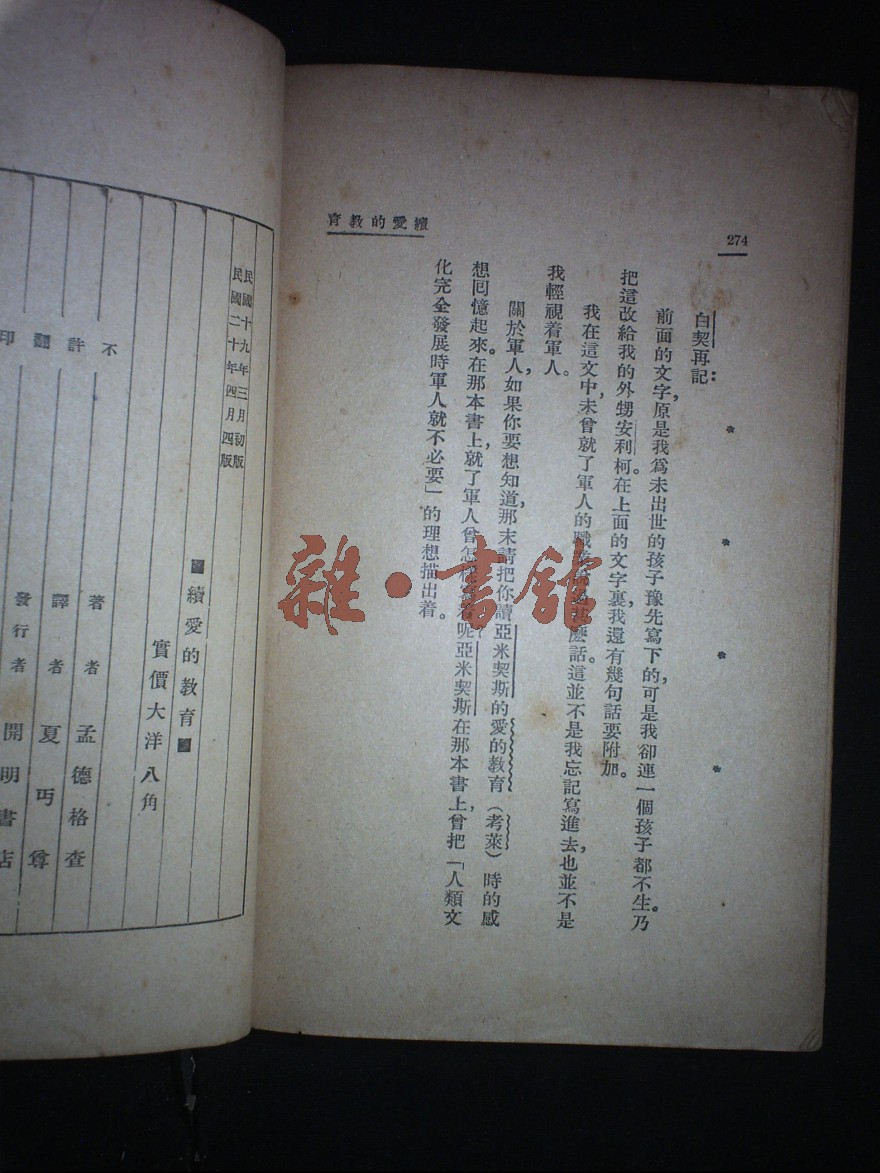 274
續愛的教育
白契再記：
前面的文字，原是我爲未出世的孩子豫先寫下的，可是我卻連一個孩子都不生。乃
把這改給我的外甥安利柯。在上面的文字裏，我還有幾句話要附加。
我在這文中，未曾就了軍人的職話。這並不是我忘記寫進去，也並不是
我輕視着軍人。
關於軍人，如果你要想知道，那末請把你讀亞米契斯的愛的教育（考萊）時的感
想回憶起來。在那本書上，就了軍人曾怎呢？亞米契斯在那本書上，曾把「人類文
化完全發展時軍人就不必要」的理想描出着。
民國十九年三月初版
民國二十年四月四版
續愛的教育
實價大洋八角
著者 孟德格查
譯者 夏丏尊
發行者 開明書店
不許翻印
雜·書館